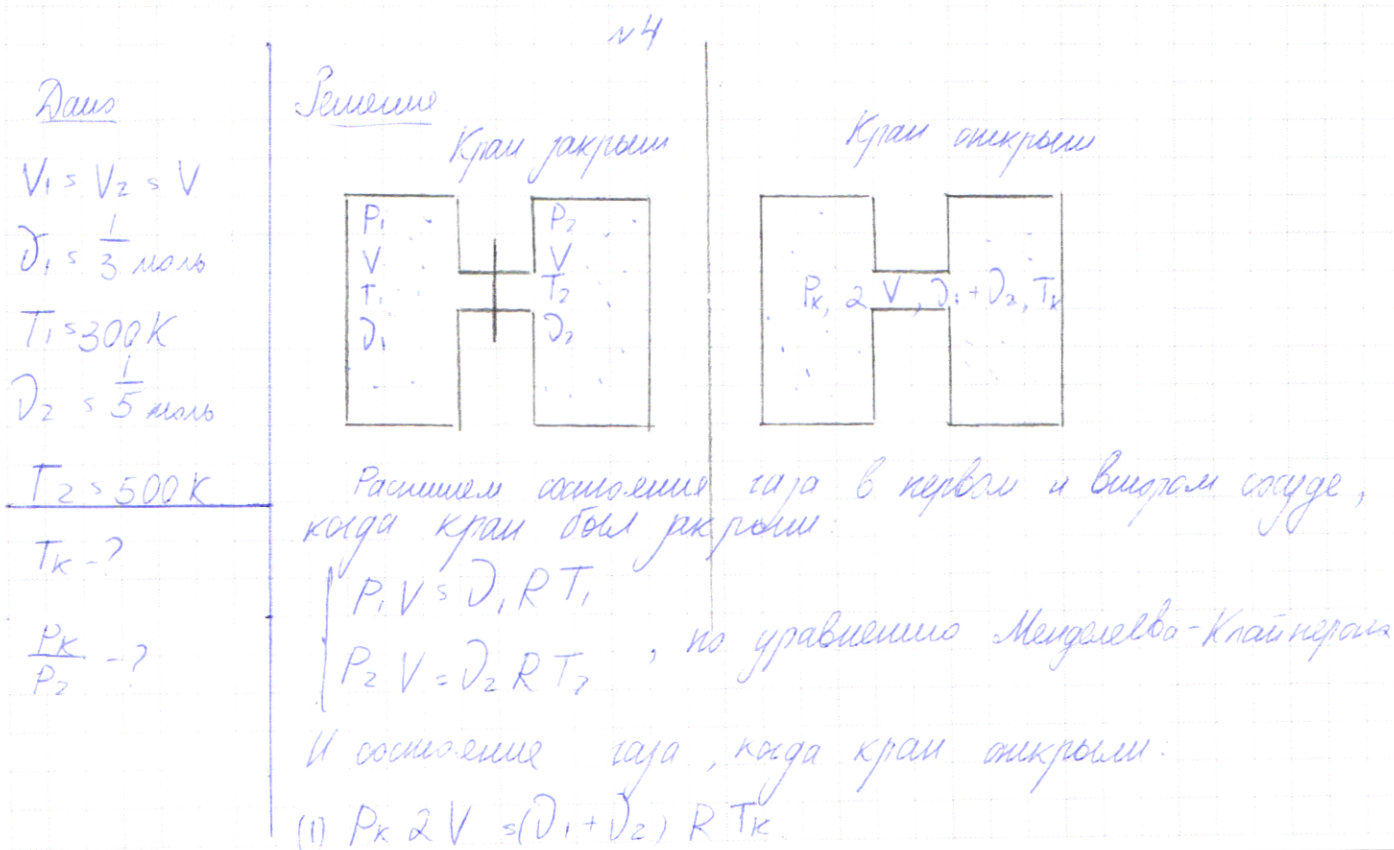 №4
Дано
V₁ = V₂ = V
ν₁ = 1/3 моль
T₁ = 300 K
ν₂ = 1/5 моль
T₂ = 500 K
Tк - ?
Pк/P₂ - ?
Решение
Кран закрыт
P₁
V
T₁
ν₁
P₂
V
T₂
ν₂
Кран открыт
Pк, 2V, ν₁+ν₂, Tк
Распишем состояние газа в первом и втором сосуде,
когда кран был закрыт:
P₁V = ν₁RT₁
P₂V = ν₂RT₂
, по уравнению Менделеева-Клайперона
И состояние газа, когда кран открыли:
(1) Pк 2V = (ν₁+ν₂) R Tк